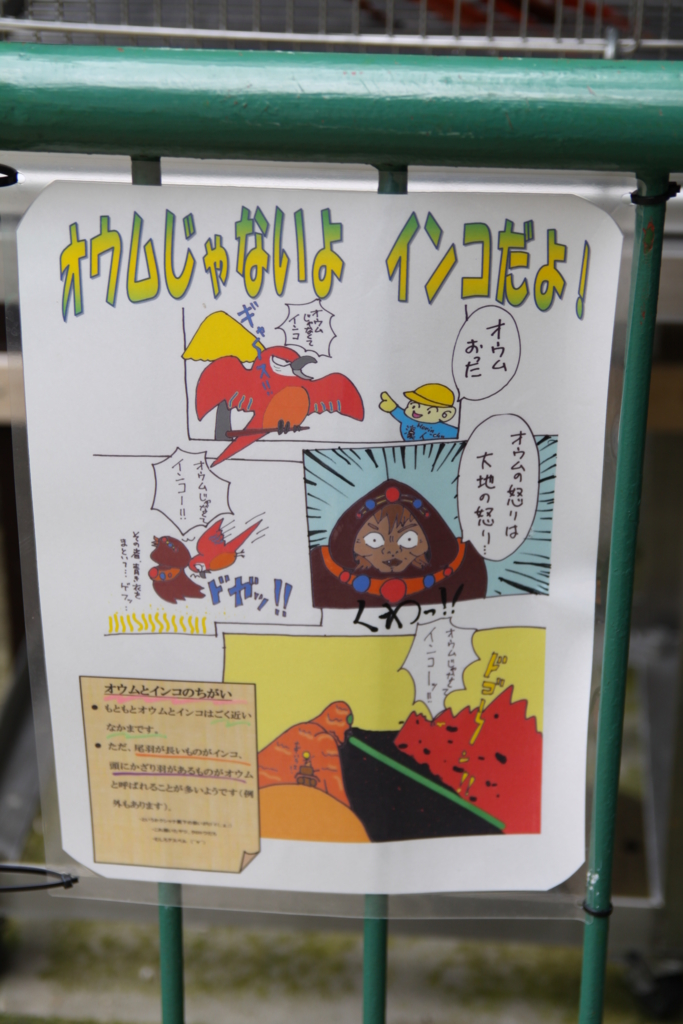 オウムじゃないよ　インコだよ！
オウム
おった
オウム
じゃなくて
インコ
ギャース!!
オウムの怒りは
大地の怒り…
くわっ!!
オウムじゃなくて
インコー!!
ドガッ!!
その者 青き衣を
まといて…
オウムじゃなくて
インコーッ!!
オウムとインコのちがい
● もともとオウムとインコはごく近い
なかまです。
● ただ、尾羽が長いものがインコ、
頭にかざり羽があるものがオウム
と呼ばれることが多いようです（例
外もあります）。